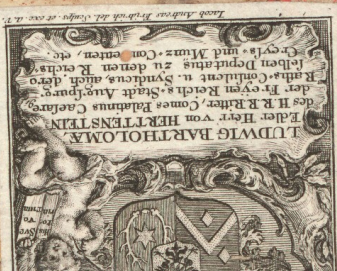 LUDWIG BARTHOLOMÆ,
Edler Herr von HERTTENSTEIN
des H.R.R. Ritter, Comes Palatinus Cæsare,
der Freyen Reichs-Stadt Augspurg
Raths-Consulent u. Syndicus, auch dero-
selben Deputatus zu denen Reichs-
Creyß- und Müntz-Conventen, etc.
Jacob Andreas Fridrich del. Sculps. et exc. A.V.